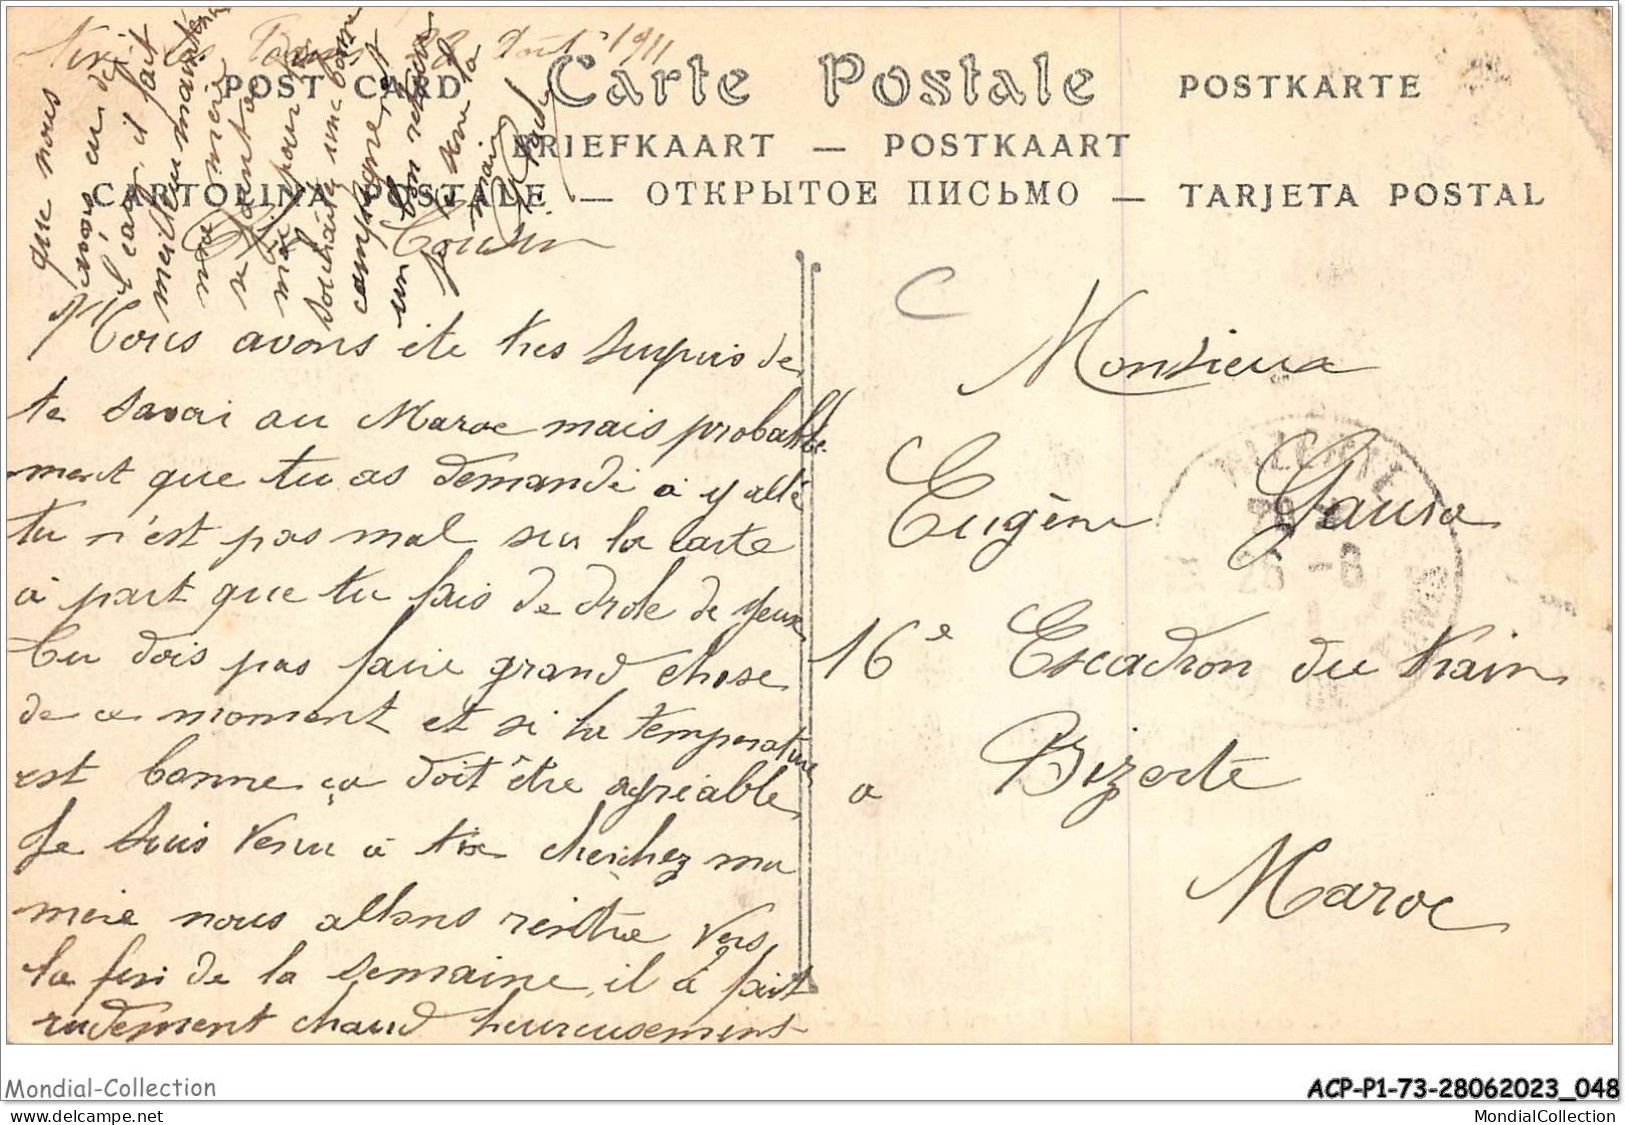 les Bains 22 Août 1911
POST CARD Carte Postale POSTKARTE
BRIEFKAART — POSTKAART
CARTOLINA POSTALE — ОТКРЫТОЕ ПИСЬМО — TARJETA POSTAL
Cher Cousin
Nous avons ete tres surpris de
te savoir au Maroc mais probable
ment que tu as demandé a y allé
tu n'est pas mal sur la carte
a part que tu fais de drole de yeux
Tu dois pas faire grand chose
de ce moment et si la temperature
est bonne ça doit être agréable
Je suis venu a cherchez ma
mère nous allons rentre vers
la fin de la semaine il a fait
rudement chaud heureusement
que nous
avons eu de
l'eau il fait
meilleur maintenant
ma mère
se joint a
moi pour te
souhaité une bonne
campagne et
un bon retour
Je te serre la
main
C
Monsieur
Eugène
16e Escadron du train
a Bizerte
Maroc
26 -8
Mondial-Collection
ACP-P1-73-28062023_048
MondialCollection